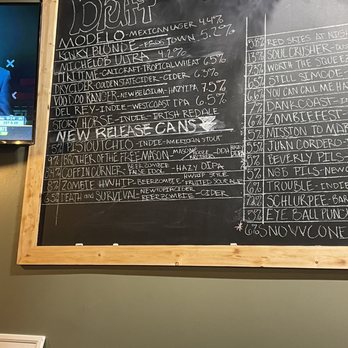 Draft
MODELO-MEXICAN LAGER 4.4%
KINKY BLONDE-PROS. TOWN 5.2%
MICHELOB ULTRA 4.2%
HALFTIME-CALICRAFT-TROPICAL WHEAT 6.5%
DRY CIDER-GOLDEN STATE CIDER-CIDER 6.9%
VOODOO RANGER-NEW BELGIUM-HAZY IPA 7.5%
DEL REY-INDIE-WEST COAST IPA 6.5%
HORSE-INDIE-IRISH RED ALE
NEW RELEASE CANS
PISTOUTCHIO-INDIE-AMERICAN STOUT
BROTHER OF THE FREE MASON
COFFIN CORNER-FALSE IDOL-HAZY DIPA
8% ZOMBIE #WWHIP-BEERZOMBIE-FRUITED SOUR ALE
DEATH AND SURVIVAL-BEERZOMBIE-CIDER
RED SKIES AT NIGH
SOUL CRUSHER-DU
WORTH THE SQUEE
STILL SIMCOE
YOU CAN CALL ME HA
DANK COAST-IND
ZOMBIE FEEST
MISSION TO MAR
JUAN CORDERO
BEVERLY PILS-
NGB PILS-NEW G
TROUBLE-INDIE
SCHLURPEE-BAR
EYE BALL PUNCH
SNOWCONE